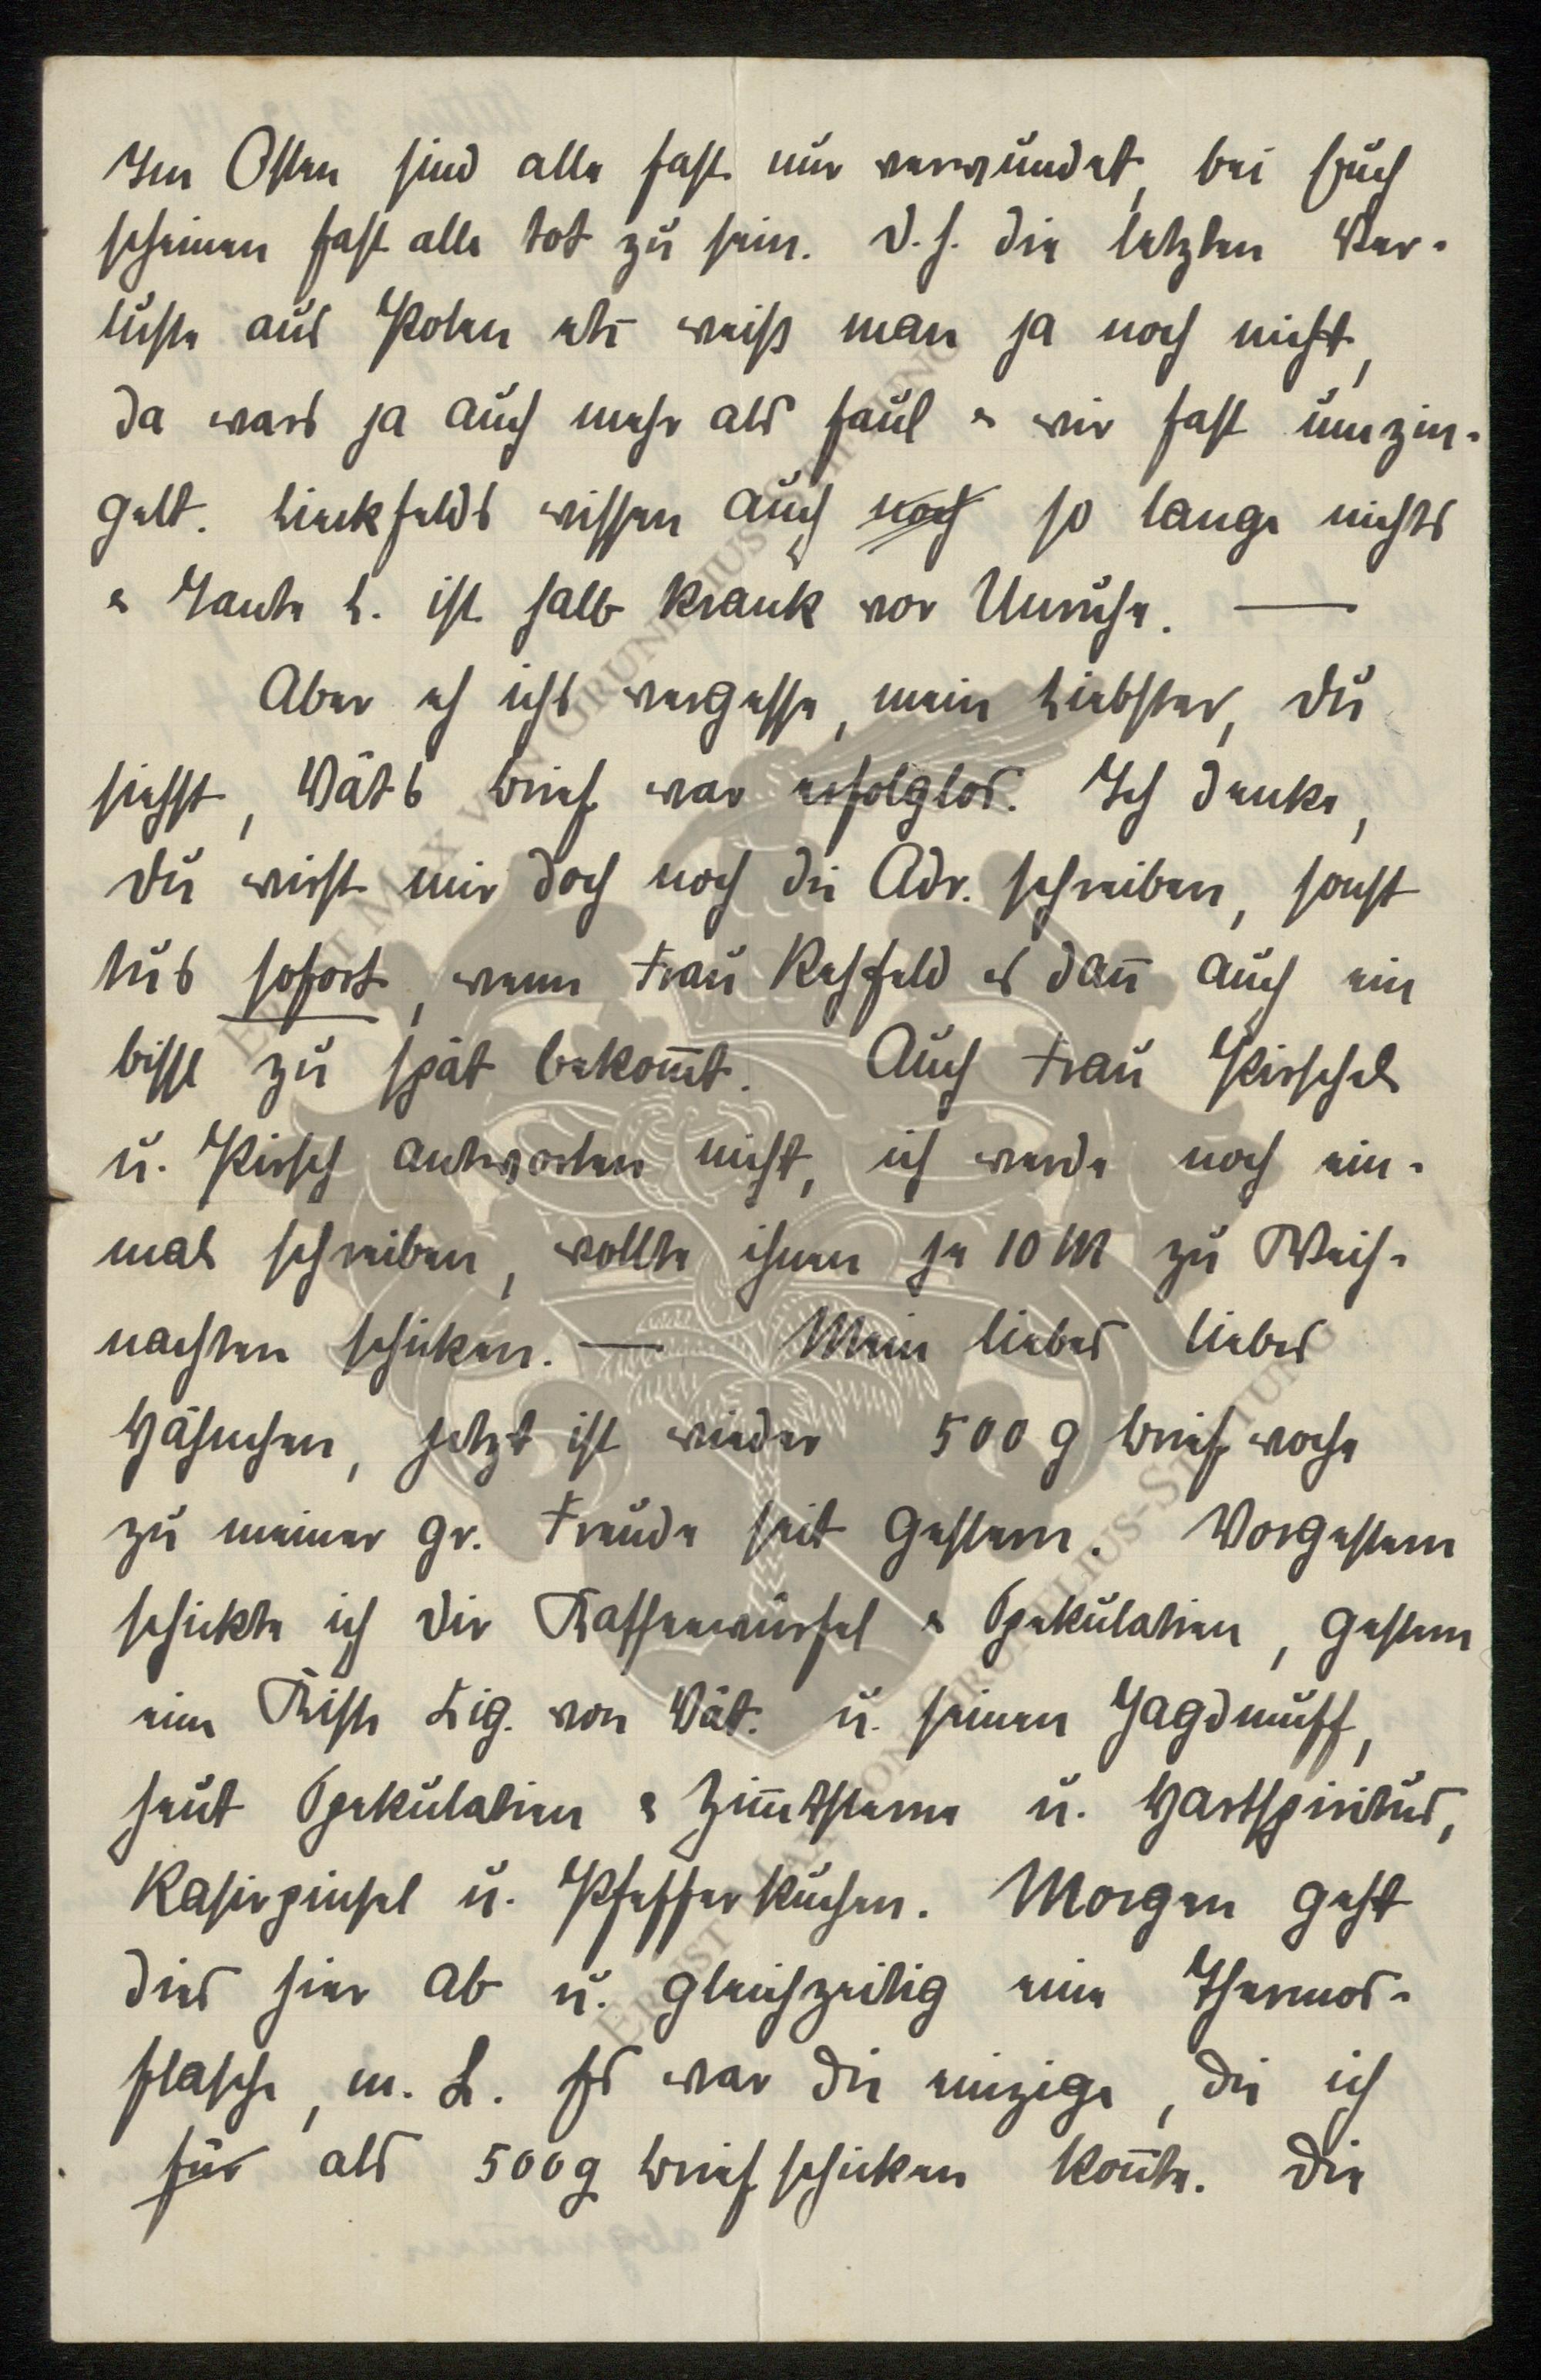 Im Osten sind alle fast nur verwundet, bei Euch
scheinen fast alle tot zu sein. D. h. die letzten Ver-
luste aus Polen etc weiß man ja noch nicht,
da wars ja auch mehr als faul & wir fast umzin-
gelt. Lieckfelds wissen auch noch so lange nichts
& Tante L. ist halb krank vor Unruhe. —
Aber eh ichs vergesse, mein Liebster, Du
siehst, Väts Brief war erfolglos. Ich denke,
Du wirst mir doch noch die Adr. schreiben, sonst
tus sofort, wenn Frau Rehfeld es dan̄ auch ein
bissl zu spät bekom̄t. Auch Frau
u. Pirsch antworten nicht, ich werde noch ein-
mal schreiben, wollte ihnen je 10 M zu Weih-
nachten schicken. — Mein liebes liebes
Hähnchen, jetzt ist wieder 500 g Brief woche
zu meiner gr. Freude seit gestern. Vorgestern
schickte ich Dir Kaffeewürfel & Spekulatien, gestern
eine Kiste Zig. von Vät. u. seinen Jagdmuff,
heut Spekulatien & Zim̄tsterne u. Hartspiritus,
Rasirpinsel u. Pfefferkuchen. Morgen geht
dies hier ab u. gleichzeitig eine Thermos-
flasche, m. L. Es war die einzige, die ich
für als 500 g Brief schicken kon̄te. Die
ERNST MAX VON GRUNELIUS-STIFTUNG
ERNST MAX VON GRUNELIUS-STIFTUNG